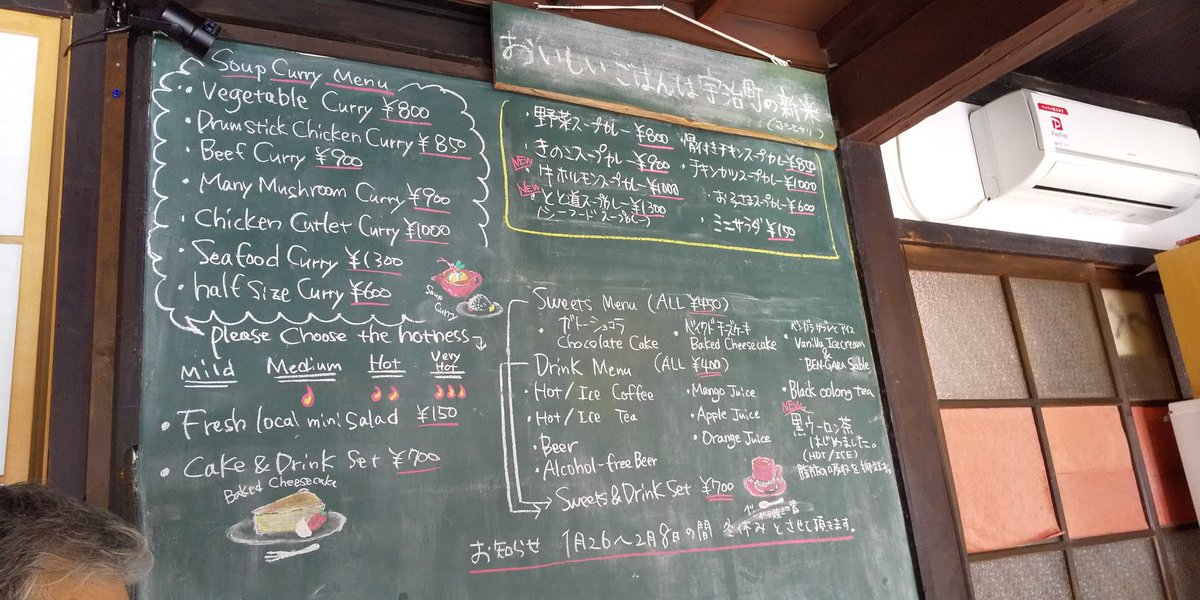 おいしいごはんは宇治町の新米
(コシヒカリ)
Soup Curry Menu
・Vegetable Curry ¥800
・Drumstick Chicken Curry ¥850
・Beef Curry ¥900
・Many Mushroom Curry ¥900
・Chicken Cutlet Curry ¥1000
・Seafood Curry ¥1300
・half Size Curry ¥600
Soup Curry
please Choose the hotness
Mild Medium Hot Very Hot
・Fresh local mini Salad ¥150
・Cake & Drink Set ¥700
Baked Cheesecake
・野菜スープカレー ¥800
NEW ・きのこスープカレー ¥900
NEW ・牛ホルモンスープカレー ¥1000
・とと道スープカレー ¥1300
(シーフードスープカレー)
・骨付きチキンスープカレー ¥850
・チキンカツスープカレー ¥1000
・おこさまスープカレー ¥600
・ミニサラダ ¥150
Sweets Menu (ALL ¥450)
・ガトーショコラ
Chocolate Cake
・ベイクドチーズケーキ
Baked Cheesecake
ベンガラサブレとアイス
・Vanilla Icecream
&
BEN-GARA Sable
Drink Menu (ALL ¥400)
・Hot/Ice Coffee
・Hot/Ice Tea
・Beer
・Alcohol-free Beer
・Mango Juice
・Apple Juice
・Orange Juice
・Black oolong tea
NEW
黒ウーロン茶
はじめました。
(HOT/ICE)
Sweets & Drink Set ¥700
お知らせ 1月26〜2月8日の間 冬休みとさせて頂きます。
PayPay